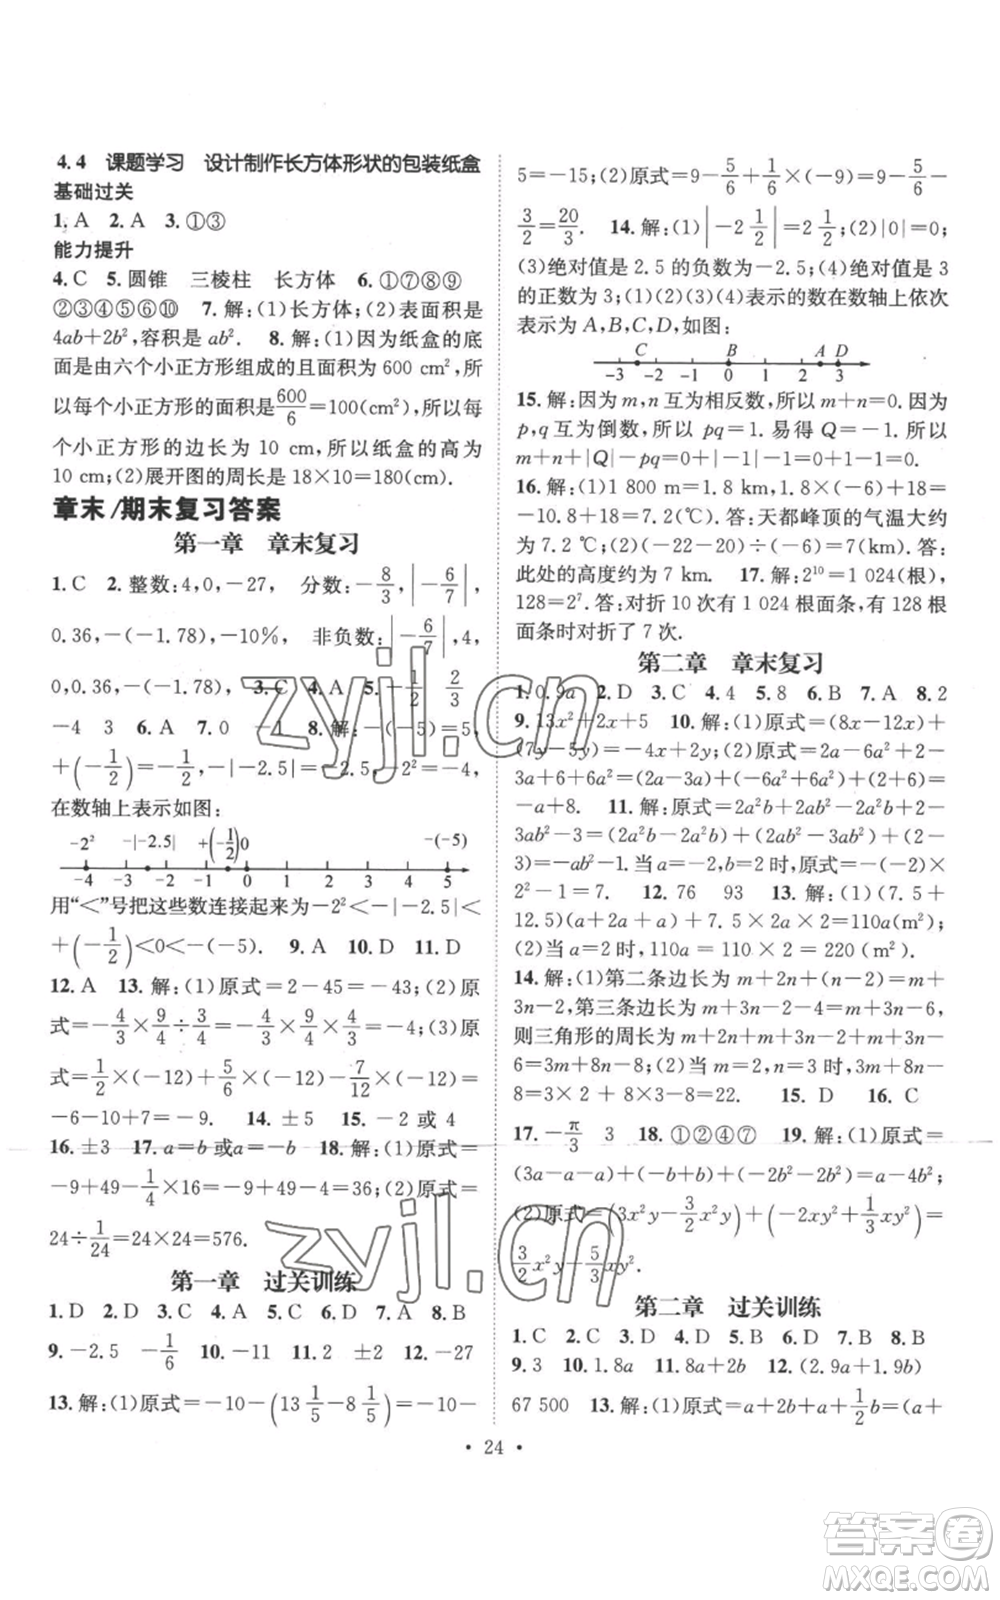 4.4 课题学习 设计制作长方体形状的包装纸盒
基础过关
1. A 2. A 3. ①③
能力提升
4. C 5. 圆锥 三棱柱 长方体 6. ①⑦⑧⑨
②③④⑤⑥⑩ 7. 解:(1)长方体;(2)表面积是
4ab+2b²,容积是ab². 8. 解:(1)因为纸盒的底
面是由六个小正方形组成的且面积为 600 cm²,所
以每个小正方形的面积是600/6=100(cm²),所以每
个小正方形的边长为 10 cm,所以纸盒的高为
10 cm;(2)展开图的周长是 18×10=180(cm).
章末/期末复习答案
第一章 章末复习
1. C 2. 整数:4,0,-27, 分数:-8/3,|-6/7|,
0.36,-(-1.78),-10%, 非负数:|-6/7|,4,
0,0.36,-(-1.78) 3. C 4. A 5. -1/2 2/3
-4 3 6. A 7. 0 -1 8. 解:-(-5)=5,
+(-1/2)=-1/2,-|-2.5|=-2.5,-2²=-4,
在数轴上表示如图:
-2² -|-2.5| +(-1/2) 0 -(-5)
-4 -3 -2 -1 0 1 2 3 4 5
用“<”号把这些数连接起来为-2²<-|-2.5|<
+(-1/2)<0<-(-5). 9. A 10. D 11. D
12. A 13. 解:(1)原式=2-45=-43;(2)原
式=-4/3×9/4÷3/4=-4/3×9/4×4/3=-4;(3)原
式=1/2×(-12)+5/6×(-12)-7/12×(-12)=
-6-10+7=-9. 14. ±5 15. -2 或 4
16. ±3 17. a=b 或a=-b 18. 解:(1)原式=
-9+49-1/4×16=-9+49-4=36;(2)原式=
24÷1/24=24×24=576.
第一章 过关训练
1. D 2. D 3. C 4. A 5. C 6. D 7. A 8. B
9. -2.5 -1/6 10. -11 11. 2 ±2 12. -27
13. 解:(1)原式=-10-(13 1/5-8 1/5)=-10-
5=-15;(2)原式=9-5/6+1/6×(-9)=9-5/6-
3/2=20/3. 14. 解:(1)|-2 1/2|=2 1/2;(2)|0|=0;
(3)绝对值是 2.5 的负数为-2.5;(4)绝对值是 3
的正数为 3;(1)(2)(3)(4)表示的数在数轴上依次
表示为 A,B,C,D,如图:
C B A D
-3 -2 -1 0 1 2 3
15. 解:因为 m,n 互为相反数,所以 m+n=0. 因为
p,q 互为倒数,所以 pq=1. 易得 Q=-1. 所以
m+n+|Q|-pq=0+|-1|-1=0+1-1=0.
16. 解:(1)1 800 m=1.8 km,1.8×(-6)+18=
-10.8+18=7.2(℃). 答:天都峰顶的气温大约
为 7.2 ℃;(2)(-22-20)÷(-6)=7(km). 答:
此处的高度约为 7 km. 17. 解:2¹⁰=1 024(根),
128=2⁷. 答:对折 10 次有 1 024 根面条,有 128 根
面条时对折了 7 次.
第二章 章末复习
1. 0.9a 2. D 3. C 4. 4 5. 8 6. B 7. A 8. 2
9. 13x²+2x+5 10. 解:(1)原式=(8x-12x)+
(7y-5y)=-4x+2y;(2)原式=2a-6a²+2-
3a+6+6a²=(2a-3a)+(-6a²+6a²)+(2+6)=
-a+8. 11. 解:原式=2a²b+2ab²-2a²b+2-
3ab²-3=(2a²b-2a²b)+(2ab²-3ab²)+(2-
3)=-ab²-1. 当 a=-2,b=2时,原式=-(-2)×
2²-1=7. 12. 76 93 13. 解:(1)(7.5+
12.5)(a+2a+a+2a)+7.5×2a×2=110a(m²);
(2)当 a=2 时,110a=110×2=220(m²).
14. 解:(1)第二条边长为 m+2n+(n-2)=m+
3n-2,第三条边长为 m+3n-2-4=m+3n-6,
则三角形的周长为 m+2n+m+3n-2+m+3n-
6=3m+8n-8;(2)当 m=2,n=3 时,3m+8n-
8=3×2+8×3-8=22. 15. D 16. C
17. -π/3 3 18. ①②④⑦ 19. 解:(1)原式=
(3a-a-a)+(-2b²-2b²)=a-4b²;
(2)原式=(3x²y-3/2x²y)+(-2xy²+1/3xy²)=
3/2x²y-5/3xy².
第二章 过关训练
1. C 2. C 3. B 4. D 5. D 6. D 7. B 8. B
9. 3 10. 1.8a 11. a+2b 12. (2.9a+1.9b)
67 500 13. 解:(1)原式=a+2a+b+1/2b=(a+
· 24 ·
zyjl.cn
zyjl.cn
答案圈
MXQE.COM